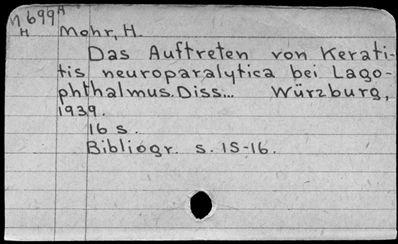 M699 H
H Mohr, H.
Das Auftreten von Kerati-
tis neuroparalytica bei Lago-
phthalmus. Diss... Würzburg,
1939.
16 s.
Bibliogr. s. 15-16.